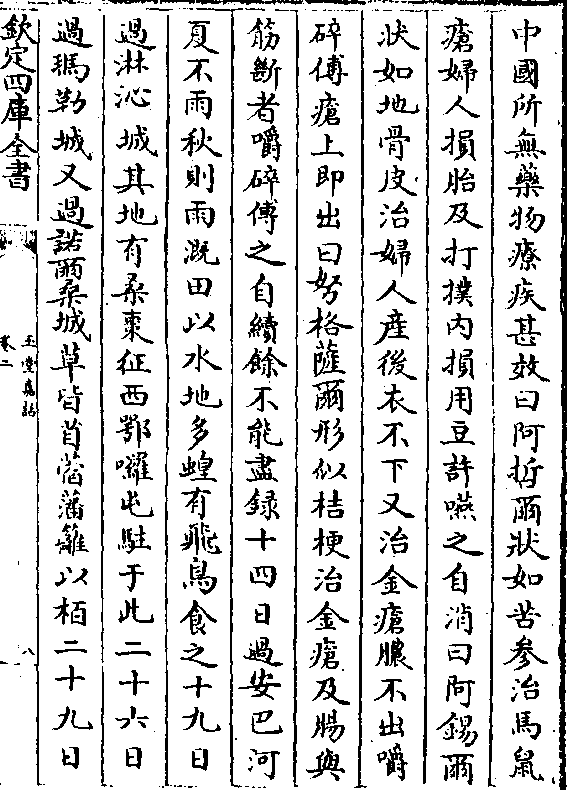 中國所無藥物療疾甚效曰阿哲爾狀如苦參治馬鼠
瘡婦人損胎及打撲内損用豆許嚥之自消曰阿錫爾
狀如地骨皮治婦人産後衣不下又治金瘡膿不出嚼
碎傅瘡上即出曰努格薩爾形似桔梗治金瘡及腸與
筋斷者嚼碎傅之自續餘不能盡録十四日過安巴河
夏不雨秋則雨溉田以水地多蝗有飛鳥食之十九日
過淋沁城其地有桑棗征西鄂囉屯駐于此二十六日
過瑪勒城又過諾爾桑城草皆苜蓿藩籬以栢二十九日
欽定四庫全書
玉堂嘉話
卷二
八